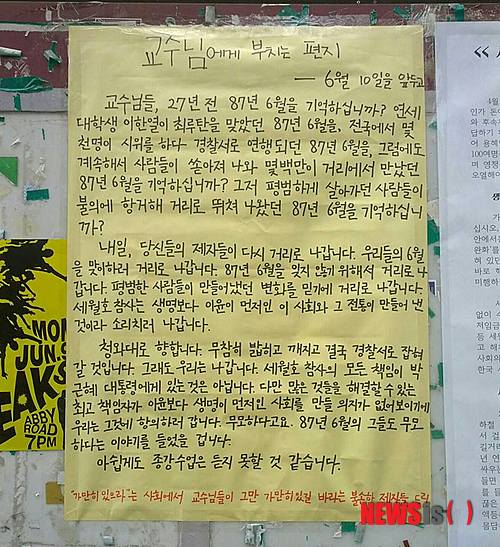 교수님에게 부치는 편지
— 6월 10일을 앞두고
교수님들, 27년 전 87년 6월을 기억하십니까? 연세
대학생 이한열이 최루탄을 맞았던 87년 6월을, 전국에서 몇
천명이 시위를 하다 경찰서로 연행되던 87년 6월을, 그럼에도
계속해서 사람들이 쏟아져 나와 몇백만이 거리에서 만났던
87년 6월을 기억하십니까? 그저 평범하게 살아가던 사람들이
불의에 항거해 거리로 뛰쳐 나왔던 87년 6월을 기억하십니
까?
내일, 당신들의 제자들이 다시 거리로 나갑니다. 우리들의 6월
을 맞이하러 거리로 나갑니다. 87년 6월을 잊지 않기 위해서 거리로 나
갑니다. 평범한 사람들이 만들어냈던 변화를 믿기에 거리로 나갑니다.
세월호 참사는 생명보다 이윤이 먼저인 이 사회와 그 전통이 만들어 낸
것이라 소리치러 나갑니다.
청와대로 향합니다. 무참히 밟히고 깨지고 결국 경찰서로 잡혀
갈 것입니다. 그래도 우리는 나갑니다. 세월호 참사의 모든 책임이 박
근혜 대통령에게 있는 것은 아닙니다. 다만 많은 것들을 해결할 수 있는
최고 책임자가 이윤보다 생명이 먼저인 사회를 만들 의지가 없어보이기에
우리는 그것에 항의하러 갑니다. 무모하다고요. 87년 6월의 그들도 무모
하다는 이야기를 들었을 겁니다.
아쉽게도 종강수업은 듣지 못할 것 같습니다.
"가만히 있으라"는 사회에서 교수님들이 그만 가만히 있길 바라는 불손한 제자들 드림
MON
JUN.
EAKS
ABBY
ROAD
7PM
4월
인가 돈
와 후속
답하기
어 용혜
100여명
며 영정
오열해
십시오.
안에서
완화'를
혀 있던
바로
미행하
없이
저임금
등 세
고 해
사회의
한국
하철
서 걸
길거리
년 연
싸우는
들면
를
끊은
액등
몸담
NEWSis( )